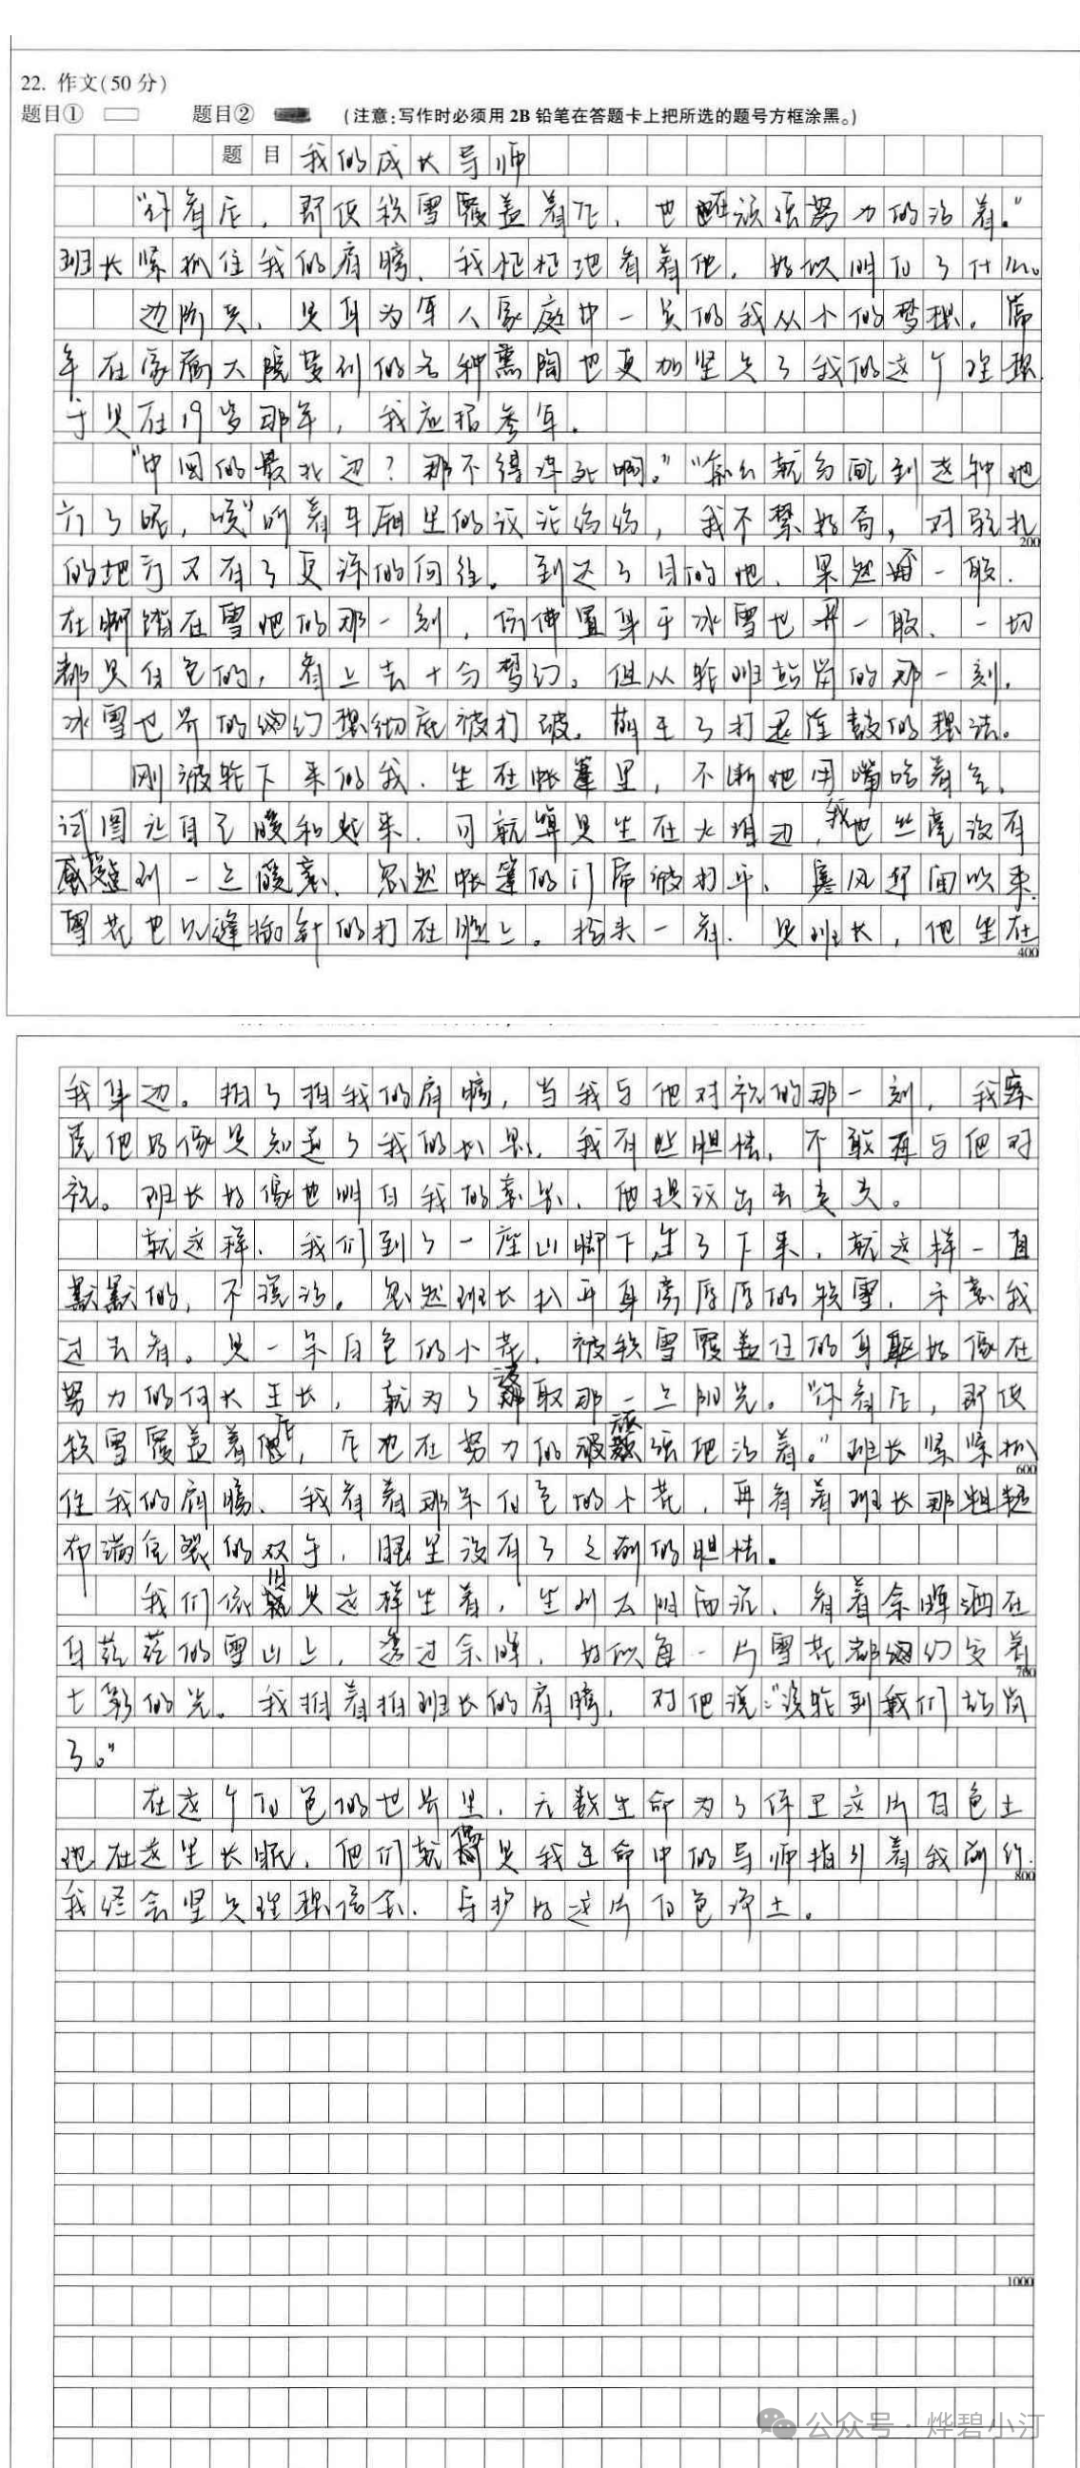 22. 作文(50 分)
题目① 题目② (注意:写作时必须用 2B 铅笔在答题卡上把所选的题号方框涂黑。)
题目 我的成长导师
“你看它,即使积雪覆盖着它,也顽强努力的活着。”
班长紧抓住我的肩膀,我怔怔地看着他,好似明白了什么。
边防兵,是身为军人家庭中一员的我从小的梦想。常
年在家属大院受到的各种熏陶也更加坚定了我的这个理想
于是在19岁那年,我应招参军。
“中国的最北边?那不得冻死啊。”“怎么就分配到这种地
方了呢,唉”听着车厢里的议论纷纷,我不禁好奇,对驻扎
200
的地方又有了更深的向往。到达了目的地,果然一般.
在脚踏在雪地的那一刻,仿佛置身于冰雪世界一般,一切
都是白色的,看上去十分梦幻。但从轮班站岗的那一刻,
冰雪世界的幻想彻底被打破,萌生了打退堂鼓的想法。
刚被轮下来的我,坐在帐篷里,不断地用嘴哈着气,
试图让自己暖和起来,可就算是坐在火堆边,我也丝毫没有
感受到一点暖意,忽然帐篷的门帘被打开,寒风夺面以来
雪花也以缝插针的打在脸上。抬头一看,是班长,他坐在
400
我身边。拍了拍我的肩膀,当我与他对视的那一刻,我察
觉他好像是知道了我的心思,我有些胆怯,不敢再与他对
视。班长好像也明白我的意思,他提议出去走走。
就这样,我们到了一座山脚下坐了下来,就这样一直
默默的,不说话。忽然班长扒开身旁厚厚的积雪,示意我
过去看。是一朵白色的小花,被积雪覆盖住的身躯好像在
努力的向长生长,就为了汲取那一点阳光。“你看它,即使
积雪覆盖着它,它也在努力的顽强地活着。”班长紧紧抓
600
住我的肩膀,我看着那朵白色的小花,再看着班长那粗糙
布满皲裂的双手,眼里没有了之前的胆怯。
我们依旧是这样坐着,坐到太阳西沉,看着余晖洒在
白茫茫的雪山上,透过余晖,好似每一片雪花都幻变着
700
七彩的光。我拍着拍班长的肩膀,对他说:“该轮到我们站岗
了。”
在这个白色的世界里,无数生命为了保卫这片白色土
地在这里长眠,他们就像是我生命中的导师指引着我前行.
800
我终会坚定理想信念,守护好这片白色净土。
1000
公众号·烨碧小汀